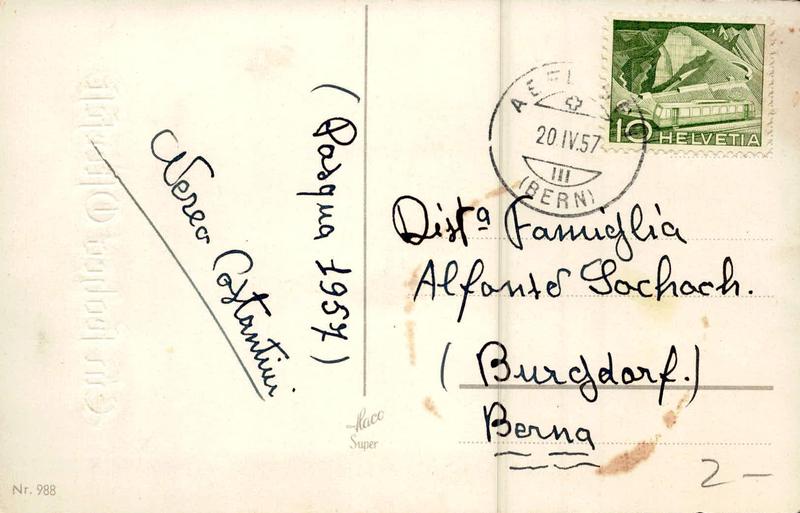 Nereo Costantini
(Pasqua 1957)
Haco
Super
Nr. 988
20.IV.57
III
(BERN)
10 HELVETIA
Distª Famiglia
Alfonso Sochach.
(Burgdorf.)
Berna
2-